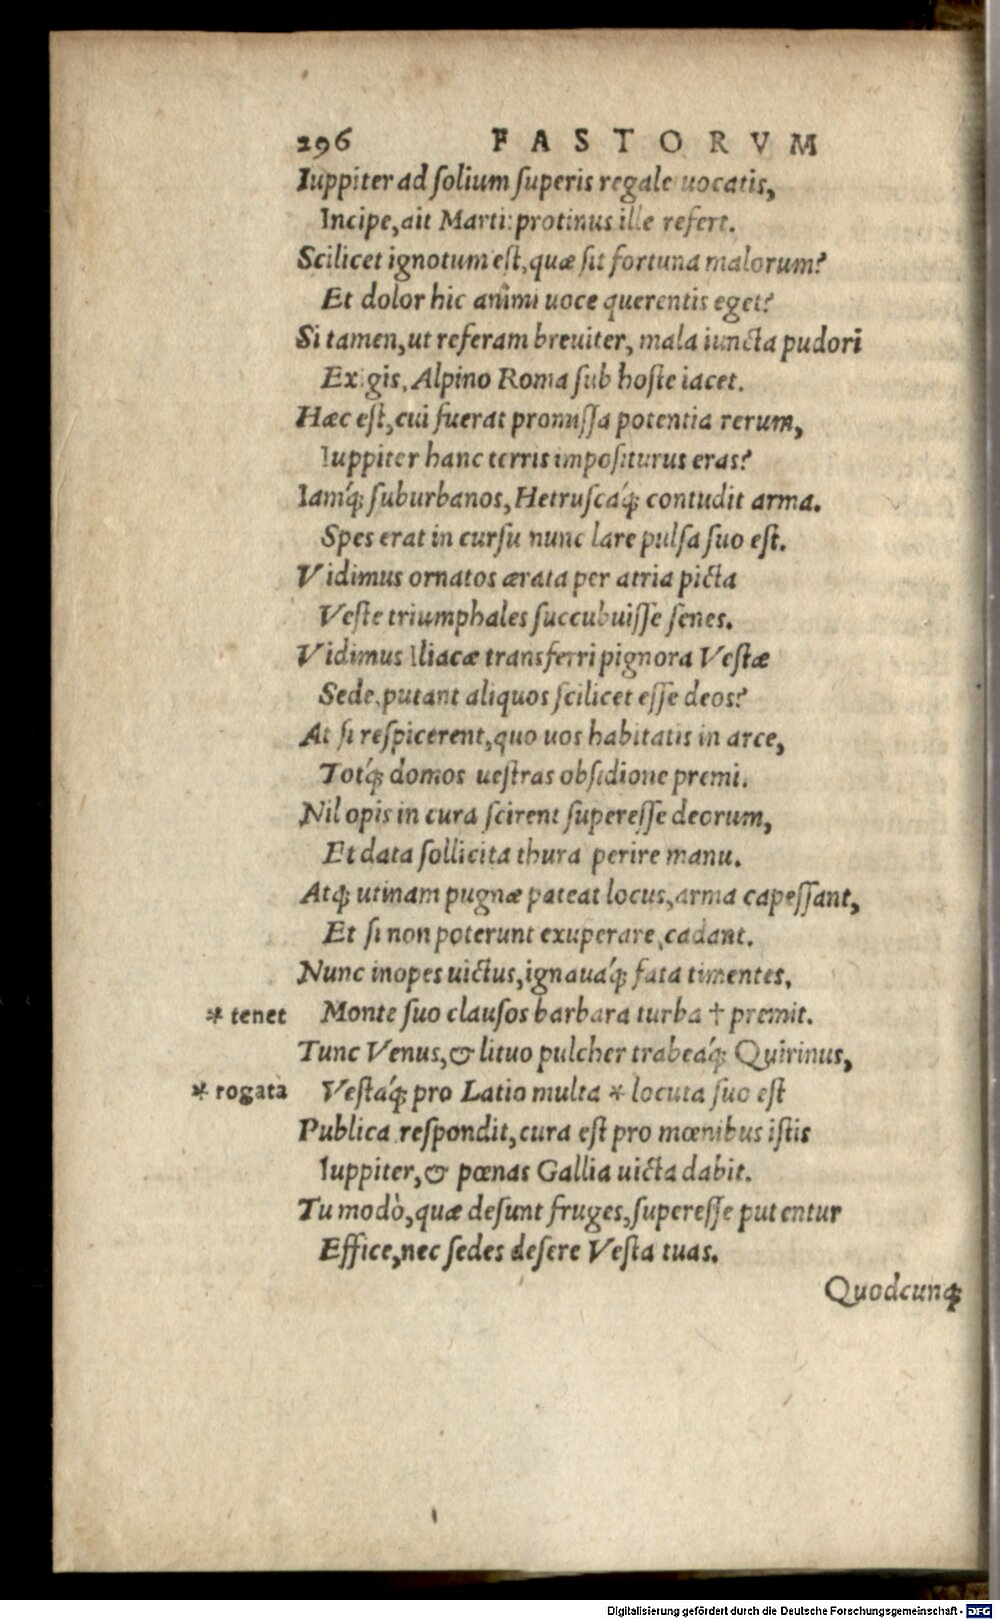 296 FASTORVM
Iuppiter ad ſolium ſuperis regale uocatis,
Incipe, ait Marti: protinus ille refert.
Scilicet ignotum eſt, quæ ſit fortuna malorum?
Et dolor hic animi uoce querentis eget?
Si tamen, ut referam breuiter, mala iuncta pudori
Exigis, Alpino Roma ſub hoſte iacet.
Hæc eſt, cui fuerat promiſſa potentia rerum,
Iuppiter hanc terris impoſiturus eras?
Iamq́; ſuburbanos, Hetruſcaq́; contudit arma.
Spes erat in curſu nunc lare pulſa ſuo eſt.
Vidimus ornatos ærata per atria picta
Veſte triumphales ſuccubuiſſe ſenes.
Vidimus Iliacæ transferri pignora Veſtæ
Sede. putant aliquos ſcilicet eſſe deos?
At ſi reſpicerent, quo uos habitatis in arce,
Totq́; domos ueſtras obſidione premi.
Nil opis in cura ſcirent ſupereſſe deorum,
Et data ſollicita thura perire manu.
Atq; utinam pugnæ pateat locus, arma capeſſant,
Et ſi non poterunt exuperare, cadant.
Nunc inopes uictus, ignauaq́; fata timentes,
* tenet Monte ſuo clauſos barbara turba † premit.
Tunc Venus, & lituo pulcher trabeaq́; Quirinus,
* rogata Veſtaq́; pro Latio multa * locuta ſuo eſt
Publica reſpondit, cura eſt pro mœnibus iſtis
Iuppiter, & pœnas Gallia uicta dabit.
Tu modò, quæ deſunt fruges, ſupereſſe putentur
Effice, nec ſedes deſere Veſta tuas.
Quodcunq;
Digitalisierung gefördert durch die Deutsche Forschungsgemeinschaft - DFG